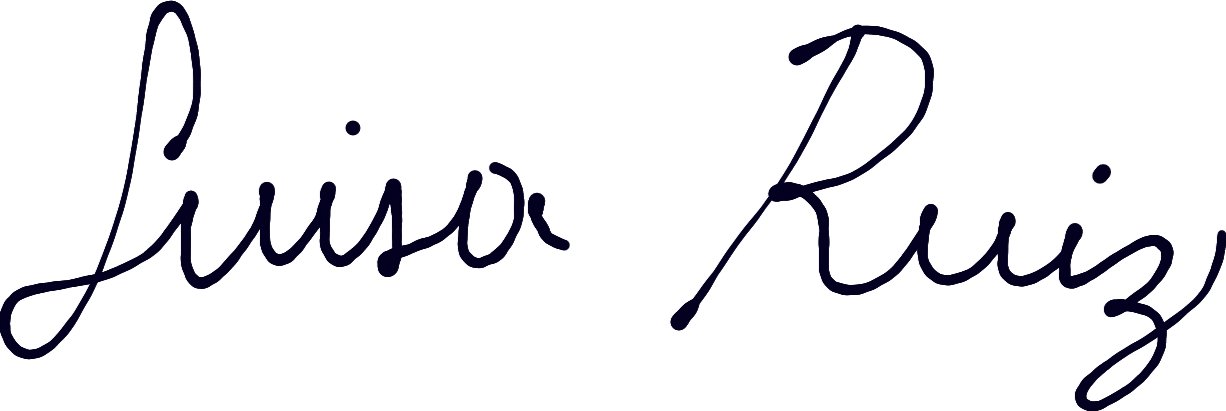 Luisa Ruiz